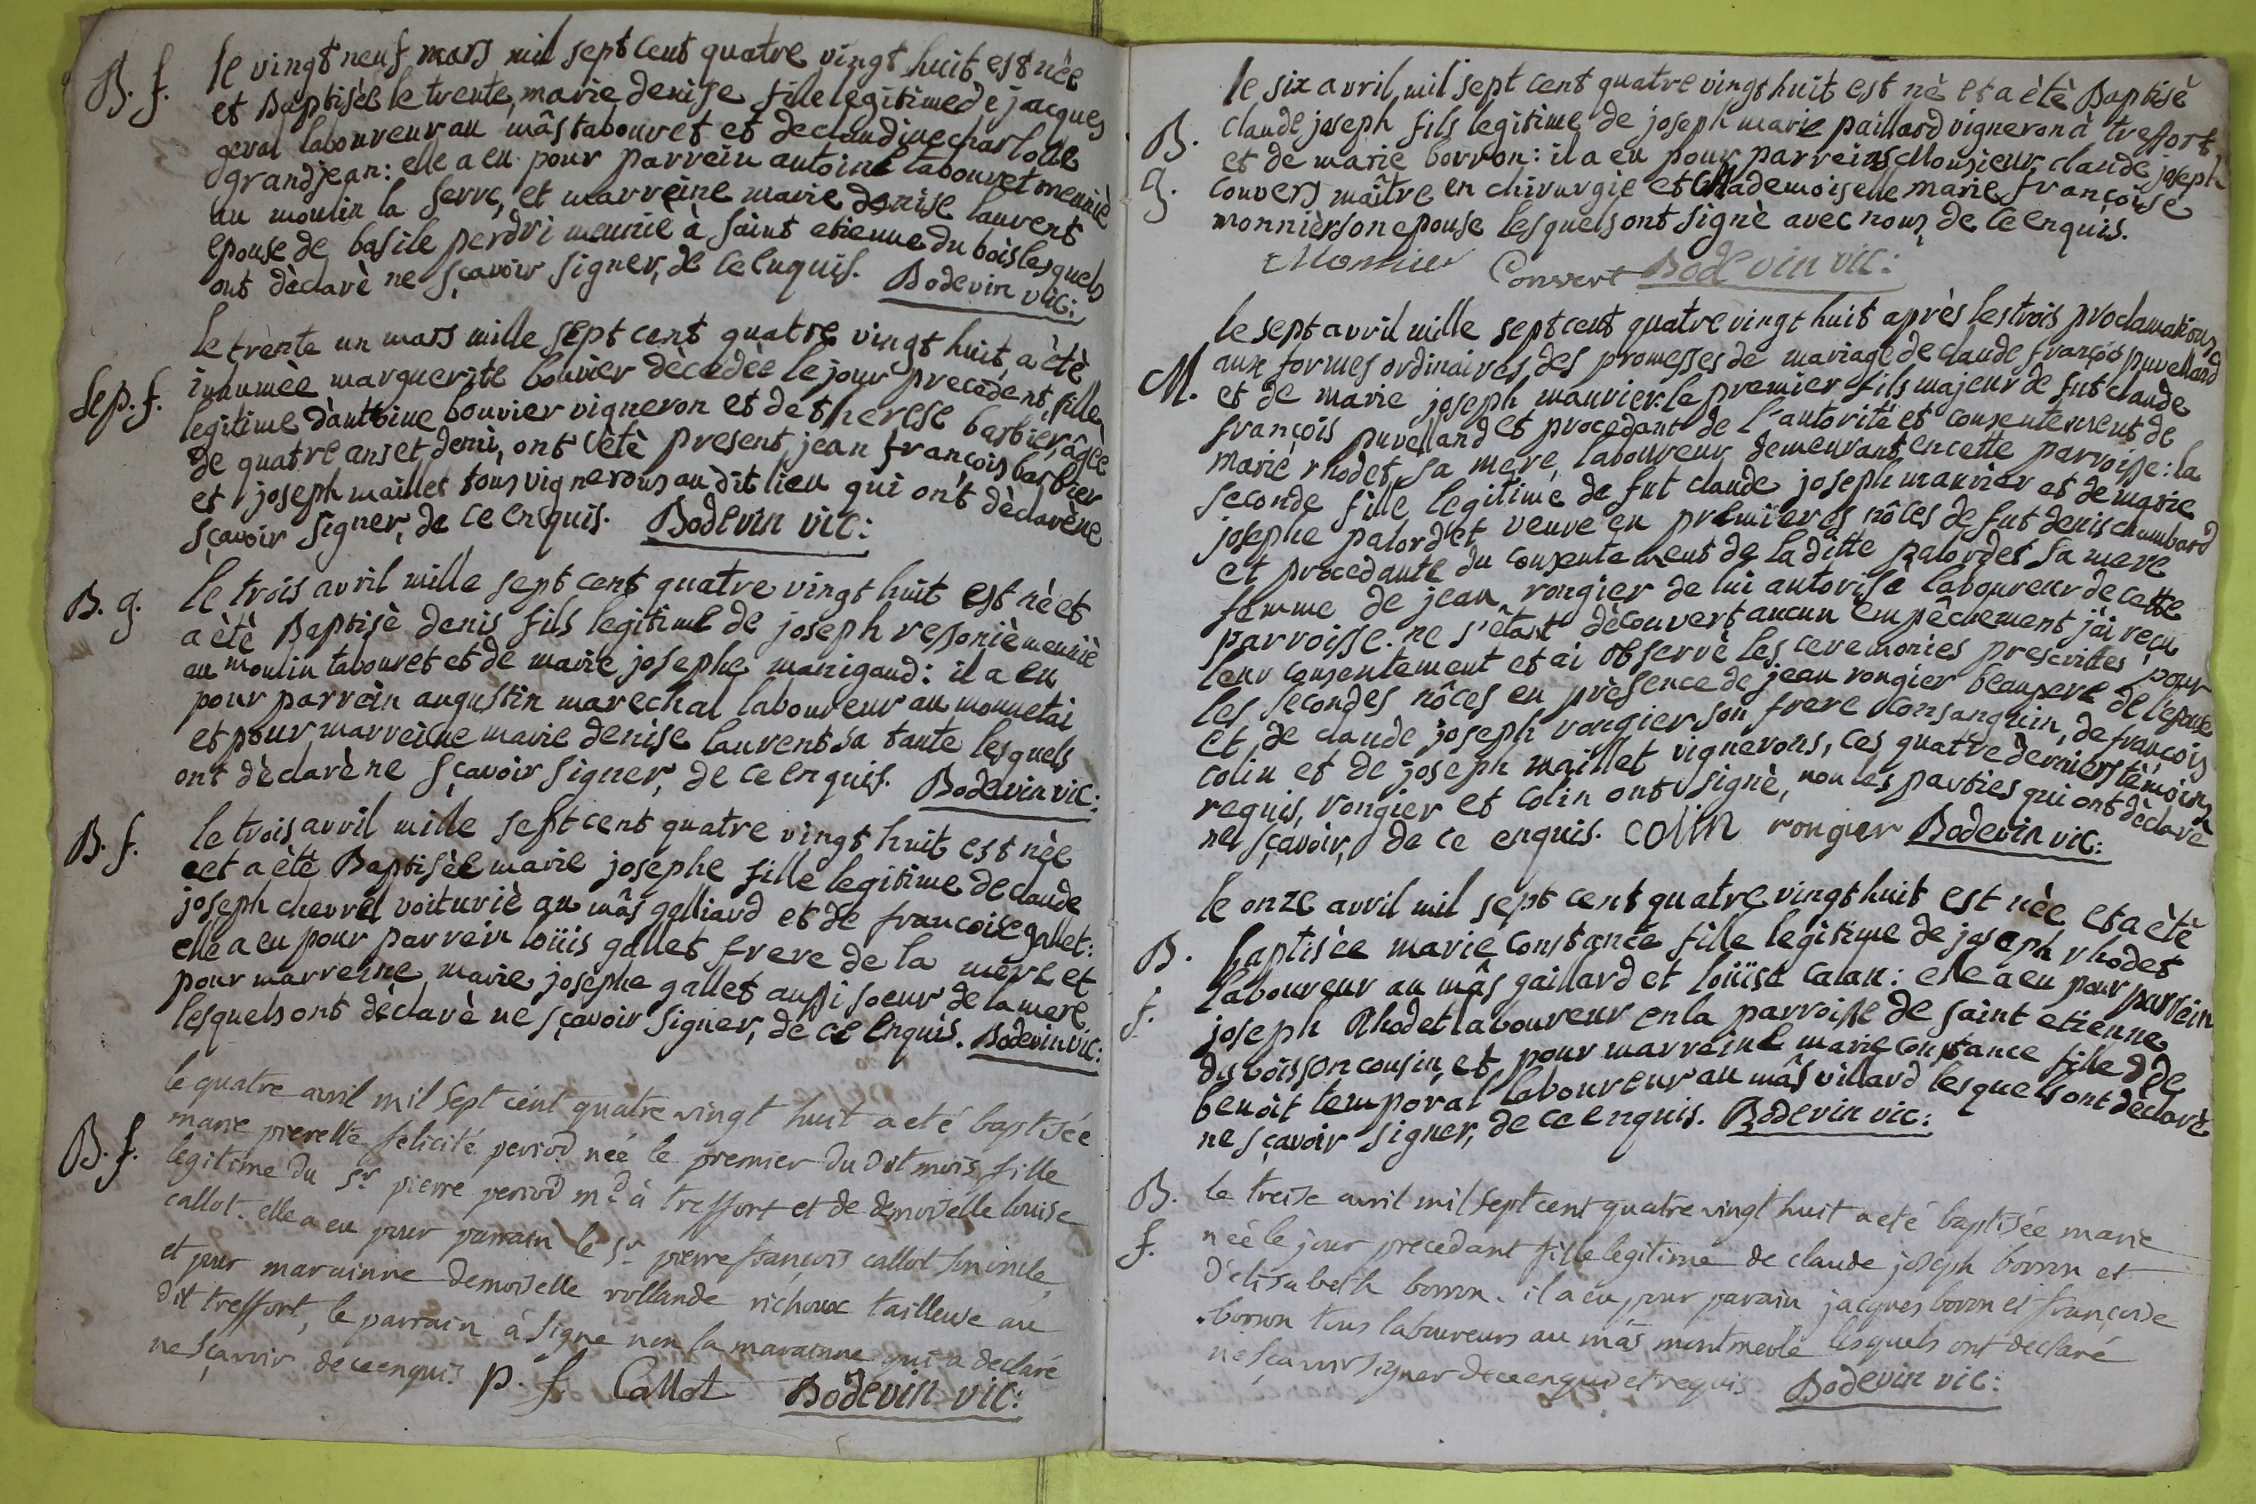 B. f.
le vingt neuf mars mil sept cent quatre vingt huit est nèe
et Baptisèe le trente, marie denise fille legitime de jacques
geval laboureur au mâs tabouret et de claudine charlotte
grandjean: elle a eu pour parrein antoine tabouret meuniè
au moulin la serve, et marreine marie denise laurent
epouse de basile perdri meuniè à saint etienne du bois lesquels
ont dèclarè ne sçavoir signer, de ce enquis. Bodevin vic:
Sep. f.
le trente un mars mille sept cent quatre vingt huit, a ètè
inhumèe marguerite bouvier dècèdèe le jour precedent, fille
legitime d'antoine bouvier vigneron et de therese barbier, âgèe
de quatre ans et demi, ont ètè present jean françois barbier
et joseph maillet tous vignerons au dit lieu qui ont dèclarè ne
sçavoir signer, de ce enquis. Bodevin vic:
B. g.
le trois avril mille sept cent quatre vingt huit est nè et
a ètè Baptisè denis fils legitime de joseph ressoniè meuniè
au moulin tabouret et de marie josephe manigaud: il a eu
pour parrein augustin marechal laboureur au monnetai
et pour marreine marie denise laurent sa tante lesquels
ont dèclarè ne sçavoir signer, de ce enquis. Bodevin vic:
B. f.
le trois avril mille sept cent quatre vingt huit est nèe
et a ètè Baptisèe marie josephe fille legitime de claude
joseph chevrel voituriè au mâs galliard et de francoise gallet:
elle a eu pour parrein loüis gallet frere de la mère et
pour marreine marie josephe gallet aussi soeur de la mere
lesquels ont dèclarè ne sçavoir signer, de ce enquis. Bodevin vic:
B. f.
le quatre avril mil sept cent quatre vingt huit a eté baptisée
marie pierette felicité period née le premier du dit mois fille
legitime du sr. pierre period md. à treffort et de demoiselle louise
callot. elle a eu pour parrain le sr. pierre françois callot son oncle,
et pour marainne demoiselle rollande richoux tailleuse au
dit treffort, le parrain à signe non la marainne qui a declaré
ne sçavoir de ce enquis p. f. Callot Bodevin vic:
B.
g.
le six avril mil sept cent quatre vingt huit est nè et a ètè Baptisè
claude joseph fils legitime de joseph marie paillard vigneron à treffort
et de marie borron: il a eu pour parreins Monsieur claude joseph
couvers maître en chirurgie et Mademoiselle marie françoise
monnièr son epouse lesquels ont signè avec nous de ce enquis.
Monnier Convert Bodevin vic:
M.
le sept avril mille sept cent quatre vingt huit après les trois proclamations
aux formes ordinaires des promesses de mariage de claude françois puvelland
et de marie joseph mauvier: le premier fils majeur de fut claude
françois puvelland et procedant de l'autorité et consentement de
marie rhodet sa mere, laboureur demeurant en cette parroisse: la
seconde fille legitime de fut claude joseph mauvier et de marie
josephe palordet veuve en premieres nôces de fut denis chambard
et procèdante du consentement de la ditte palordet sa mere
femme de jean rongier de lui autorisè laboureur de cette
parroisse. ne s'ètant dècouvert aucun empêchement j'ài reçu
leur consentement et ai observè les ceremonies prescrittes pour
les secondes nôces en prèsence de jean rongier beaupere de l'epouse
et de claude joseph rongier son frere consanguin, de françois
colin et de joseph maillet vignerons, ces quatre derniers tèmoins
requis, rongier et colin ont signè, non les parties qui ont dèclarè
ne sçavoir, de ce enquis. colin rongier Bodevin vic:
B.
f.
le onze avril mil sept cent quatre vingt huit est nèe et a ètè
baptisèe marie constance fille legitime de joseph rhodet
laboureur au mâs gaillard et loüise calan: elle a eu pour parrein
joseph Rhodet laboureur en la parroisse de saint etienne
du bois son cousin, et pour marreine marie constance fille de
benoit temporal laboureur au mâs villard lesquels ont dèclarè
ne sçavoir signer, de ce enquis. Bodevin vic:
B.
f.
le treise avril mil sept cent quatre vingt huit a eté baptisée marie
née le jour precedant fille legitime de claude joseph borron et
d'elisabeth borron. il a eu pour parain jacques boron et françoise
borron tous laboureurs au mâs montmerle lesquels ont declaré
ne sçavoir signer de ce enquis et requis Bodevin vic: